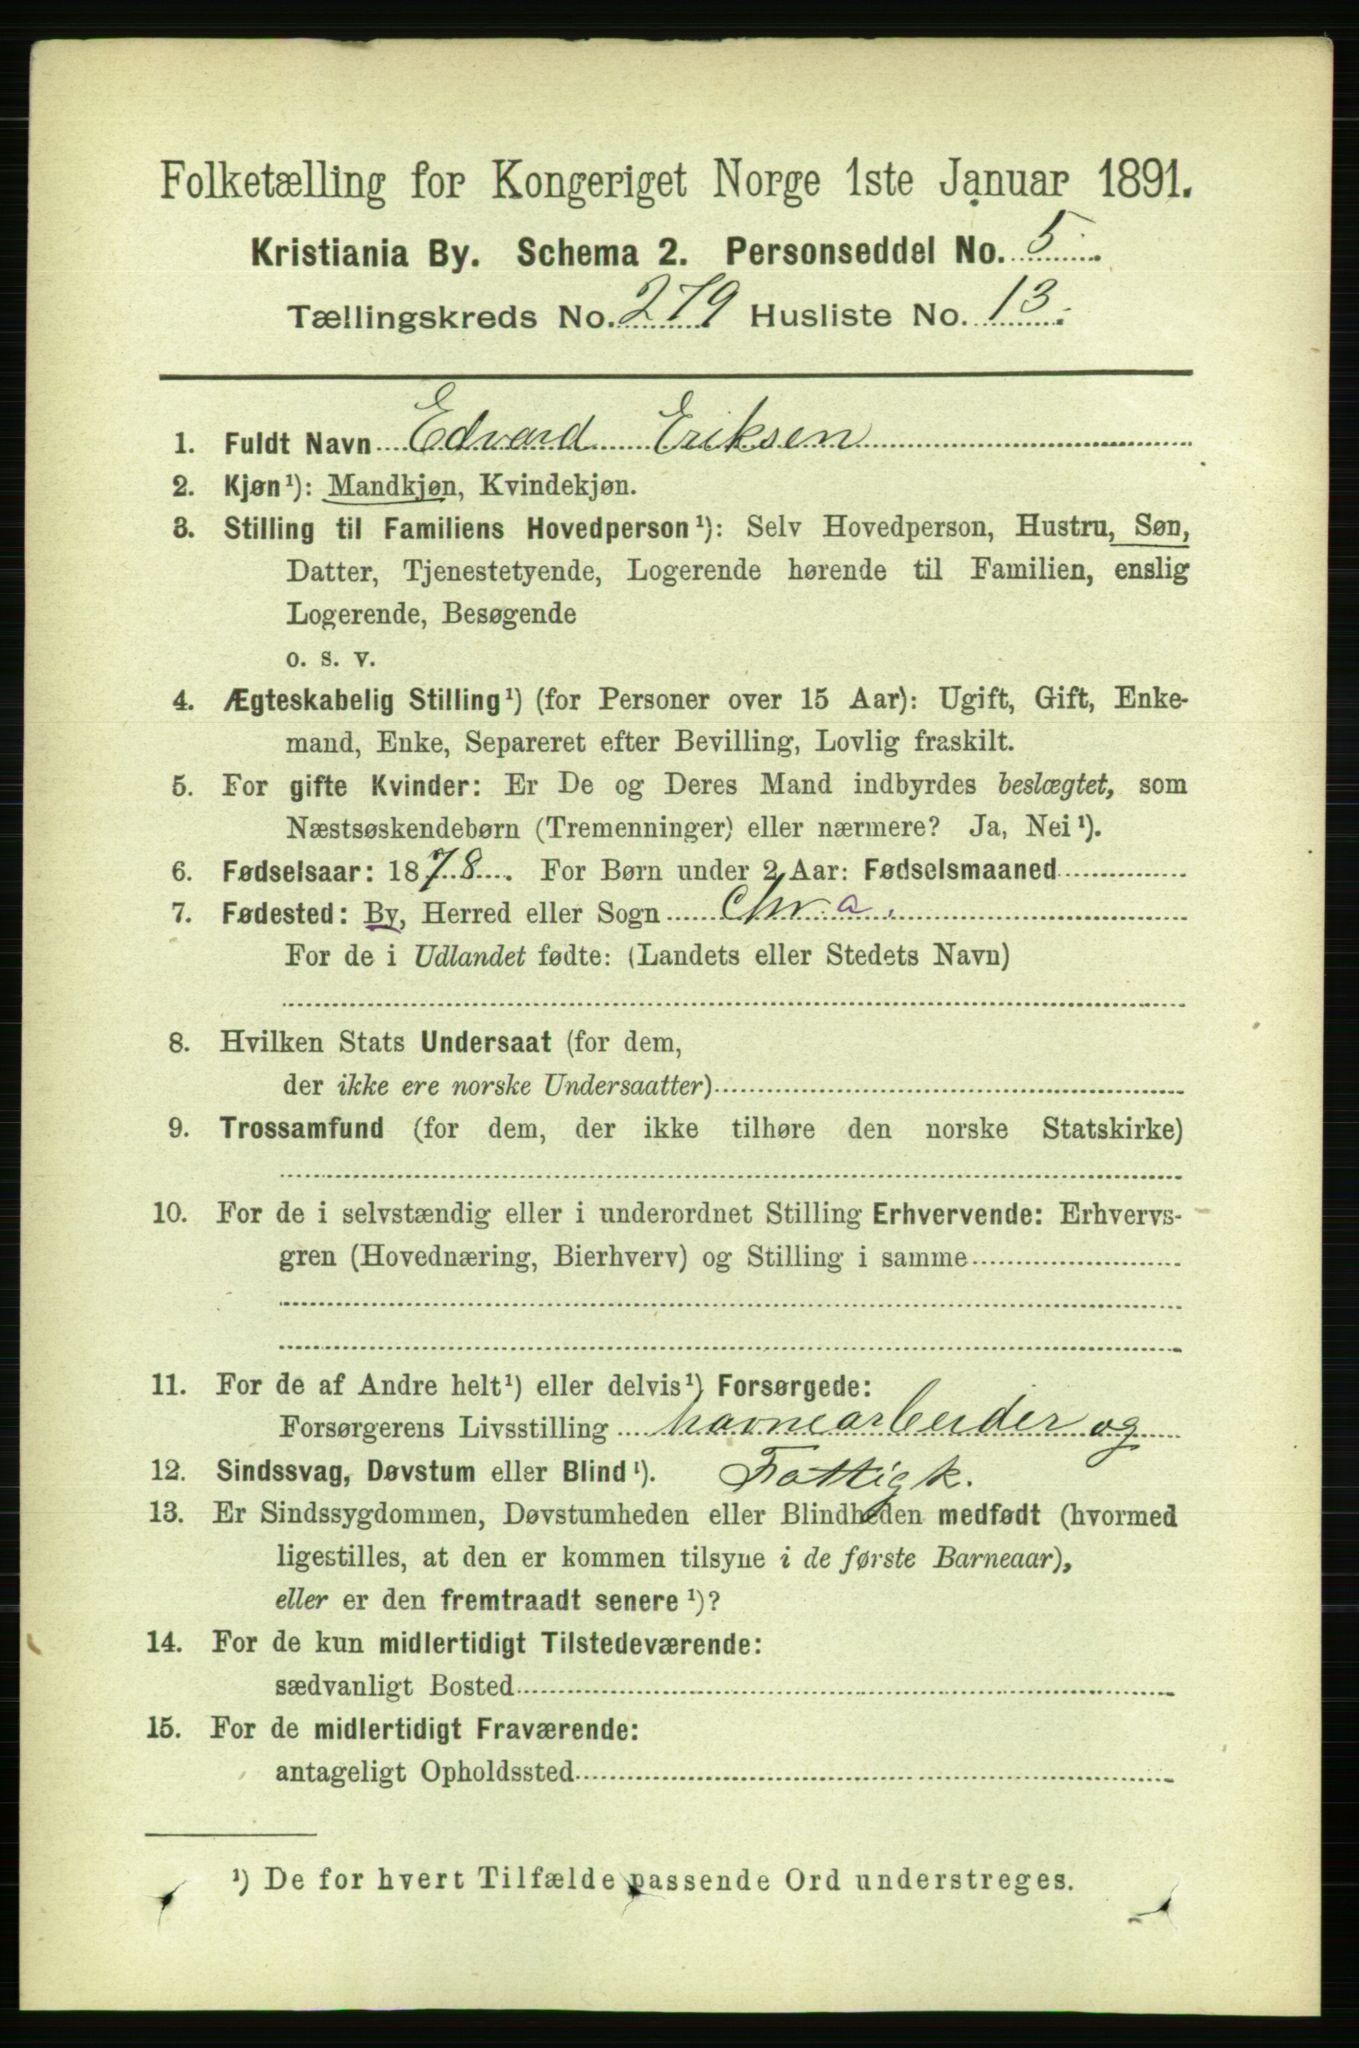 Folketælling for Kongeriget Norge 1ste Januar 1891.
Kristiania By. Schema 2. Personseddel No. 5
Tællingskreds No. 279 Husliste No. 13.
1. Fuldt Navn Edvard Eriksen
2. Kjøn¹): Mandkjøn, Kvindekjøn.
3. Stilling til Familiens Hovedperson¹): Selv Hovedperson, Hustru, Søn,
Datter, Tjenestetyende, Logerende hørende til Familien, enslig
Logerende, Besøgende
o. s. v.
4. Ægteskabelig Stilling¹) (for Personer over 15 Aar): Ugift, Gift, Enke-
mand, Enke, Separeret efter Bevilling, Lovlig fraskilt.
5. For gifte Kvinder: Er De og Deres Mand indbyrdes beslægtet, som
Næstsøskendebørn (Tremenninger) eller nærmere? Ja, Nei¹).
6. Fødselsaar: 1878. For Børn under 2 Aar: Fødselsmaaned
7. Fødested: By, Herred eller Sogn Chr.a.
For de i Udlandet fødte: (Landets eller Stedets Navn)
8. Hvilken Stats Undersaat (for dem,
der ikke ere norske Undersaatter)
9. Trossamfund (for dem, der ikke tilhøre den norske Statskirke)
10. For de i selvstændig eller i underordnet Stilling Erhvervende: Erhvervs-
gren (Hovednæring, Bierhverv) og Stilling i samme
11. For de af Andre helt¹) eller delvis¹) Forsørgede:
Forsørgerens Livsstilling havnearbeider og
12. Sindssvag, Døvstum eller Blind¹). Fattigk.
13. Er Sindssygdommen, Døvstumheden eller Blindheden medfødt (hvormed
ligestilles, at den er kommen tilsyne i de første Barneaar),
eller er den fremtraadt senere¹)?
14. For de kun midlertidigt Tilstedeværende:
sædvanligt Bosted
15. For de midlertidigt Fraværende:
antageligt Opholdssted
¹) De for hvert Tilfælde passende Ord understreges.